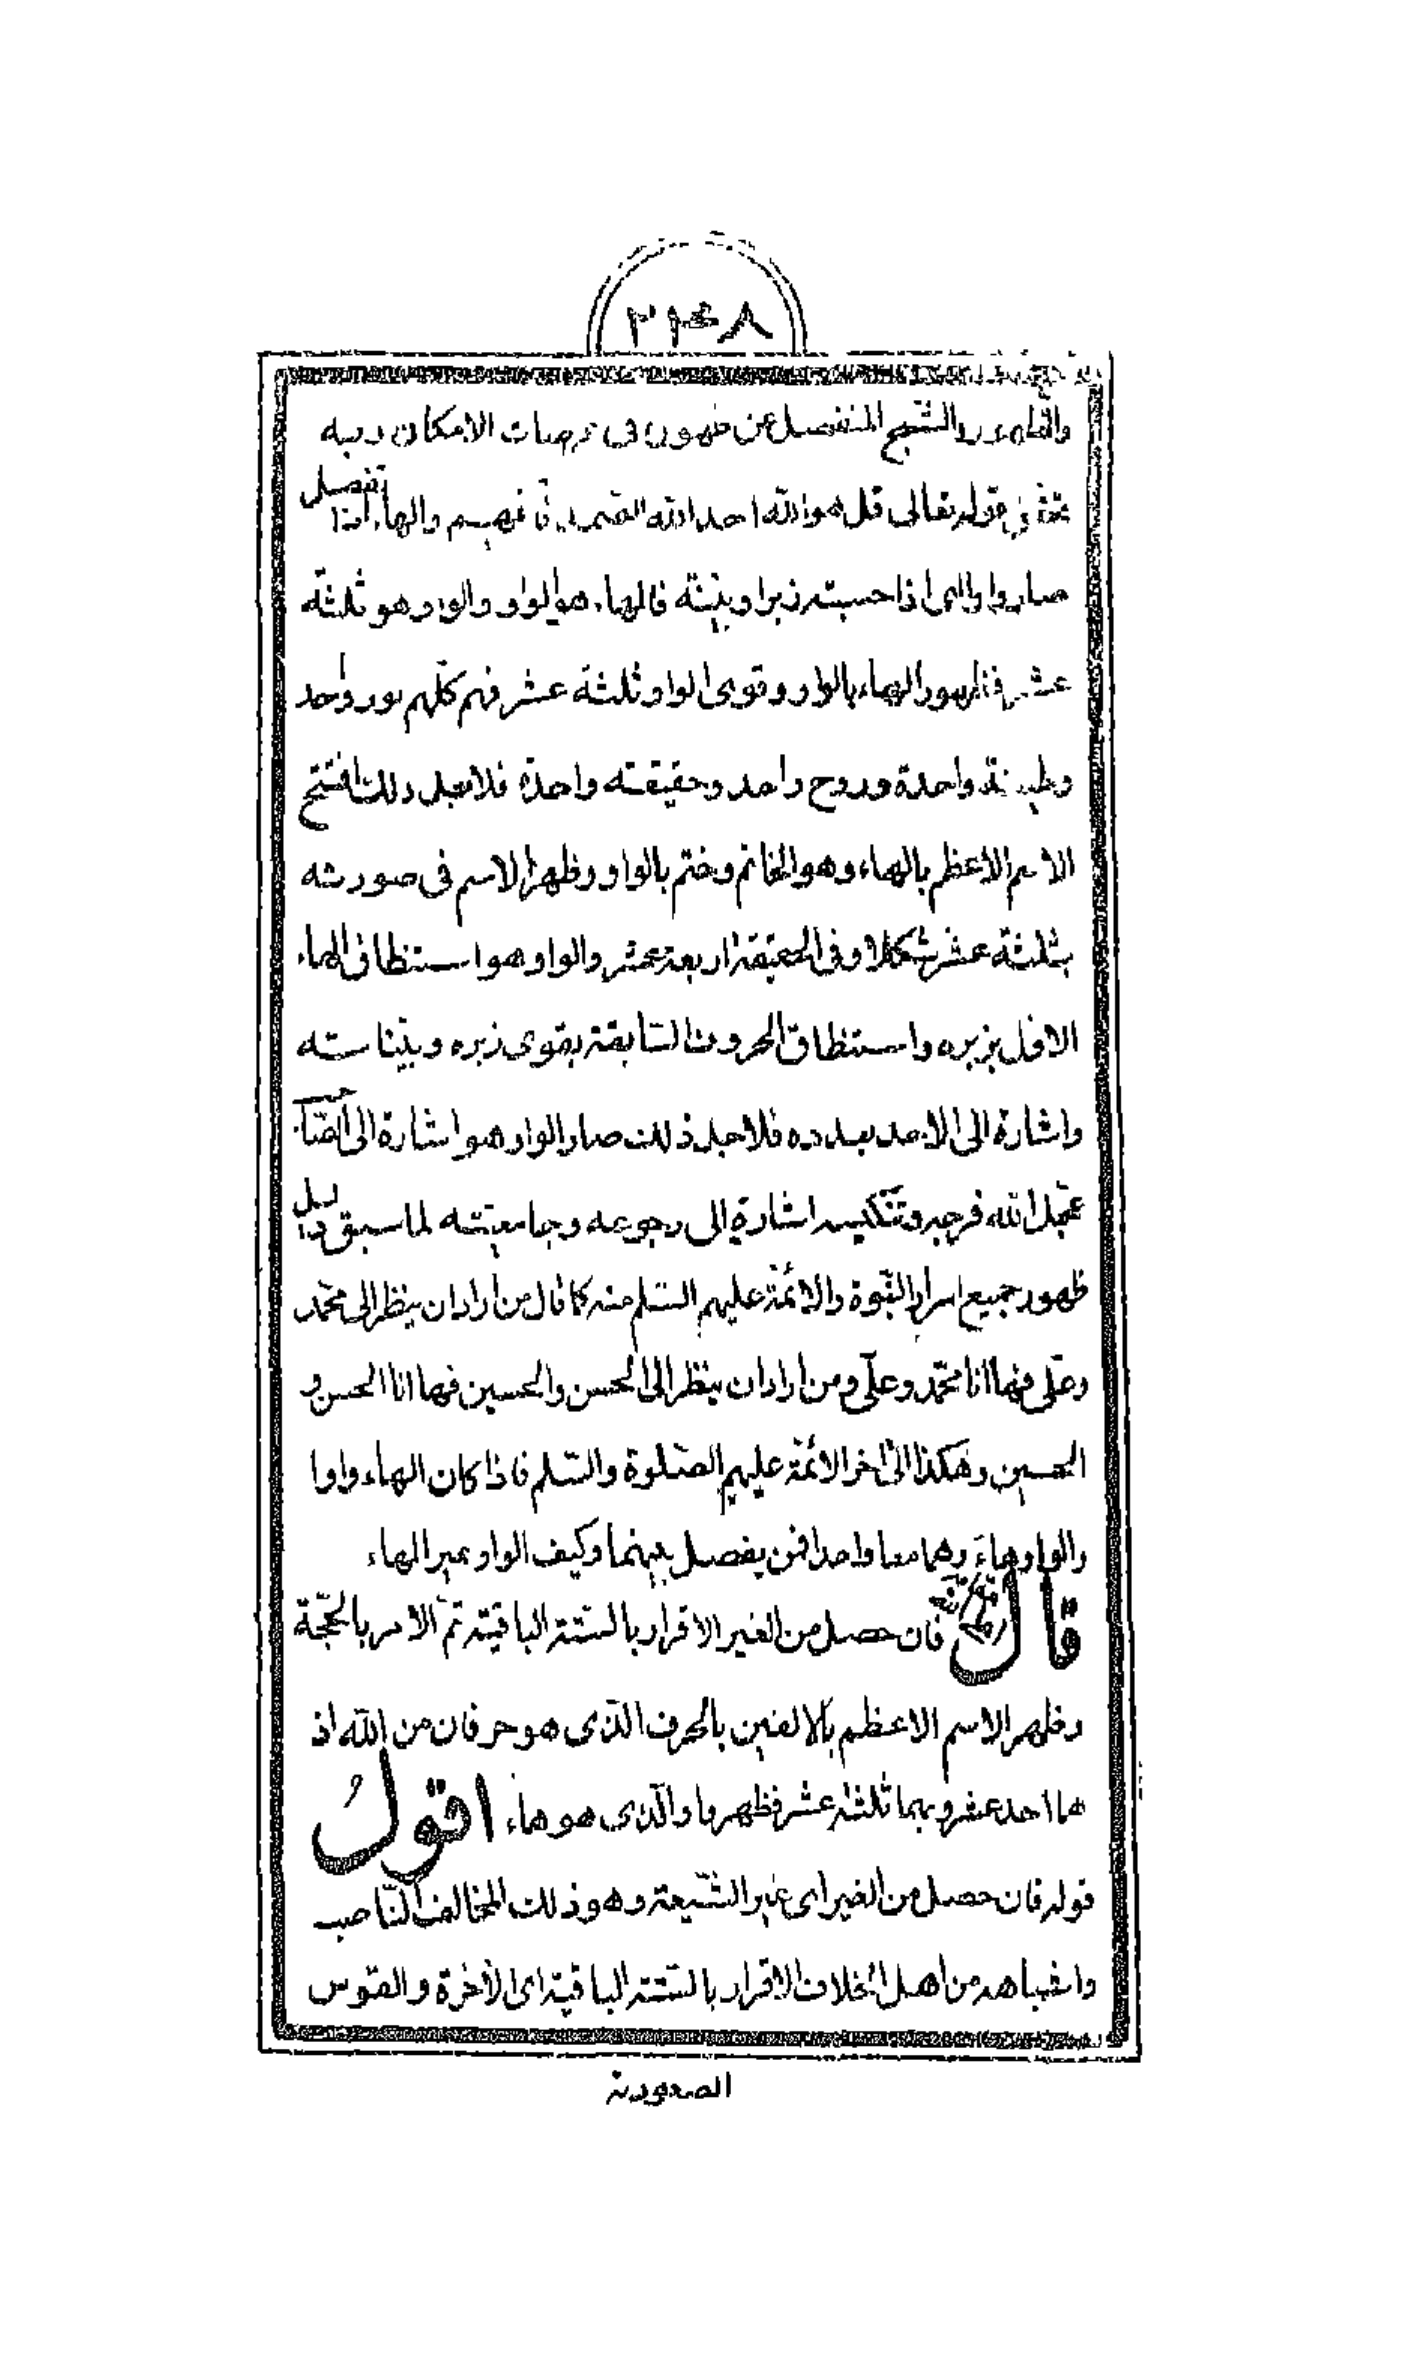 ٣٤٨
والظهور والشبح المنفصل عن ظهوره في عرصات الامكان وبه
في قوله تعالى قل هو الله احد الله الصمد فافهم والهاء اذا تفصل
صار واوا والى اذا حسبته زبرا وبينة فالهاء هو الواو والواو هو ثلثة
عشر فظهور الهاء بالواو وقوى الواو ثلثة عشر فهم كلهم نور واحد
وطينة واحدة وروح واحد وحقيقة واحدة فلاجل ذلك افتتح
الاسم الاعظم بالهاء وهو الخاتم وختم بالواو وظهر الاسم في صورته
بثلثة عشر شكلا وفي الحقيقة اربعة عشر والواو هو استنطاق الهاء
الاول بزبره واستنطاق الحروف السابقة بقوى زبره وبيناته
واشارة الى الاحد بعدده فلاجل ذلك صار الواو هو اشارة الى الصاحب
عجل الله فرجه وتنكيسه اشارة الى رجوعه وجامعيته لما سبق دليل
ظهور جميع اسرار النبوة والائمة عليهم السلم منه كما قال من اراد ان ينظر الى محمد
وعلي فها انا محمد وعلي ومن اراد ان ينظر الى الحسن والحسين فها انا الحسن و
الحسين وهكذا الى اخر الائمة عليهم الصلوة والسلم فاذا كان الهاء واوا
والواو هاء وهما معا واحدا فمن يفصل بينهما وكيف الواو عير الهاء
قال فان حصل من الغير الاقرار بالستة الباقية تم الامر بالحجة
وظهر الاسم الاعظم بالالفين بالحرف الذي هو حرفان من الله اذ
هما احد عشر وبهما ثلثة عشر فظهر واو الذي هو هاء اقول
قوله فان حصل من الغير اي غير الشيعة وهو ذلك المخالف الناصب
واشباهه من اهل الخلاف الاقرار بالستة الباقية اي الاخرة والقوس
الصعودية